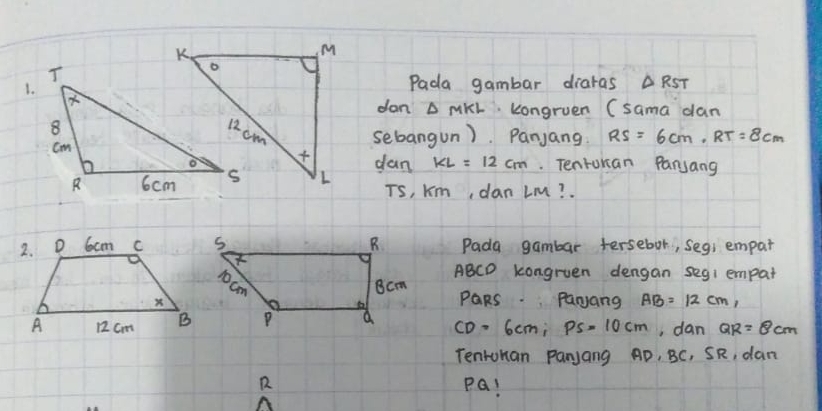 1.
T
8
cm
R
6cm
S
x
o
K
M
o
12cm
+
L
Pada gambar diatas △ RST
dan △ MKL . kongruen ( sama dan
sebangun ) . Panjang RS = 6cm . RT = 8cm
dan KL = 12 cm . Tentukan Panjang
TS, KM , dan LM ?.
2.
D 6cm C
A
12 cm
B
x
S
R
x
10cm
8cm
P
Q
Pada gambar tersebut, segi empat
ABCD kongruen dengan segi empat
PQRS . . Panjang AB = 12 cm,
CD = 6cm ; PS = 10 cm , dan QR = 8cm
Tentukan Panjang AD, BC, SR, dan
PQ !
R